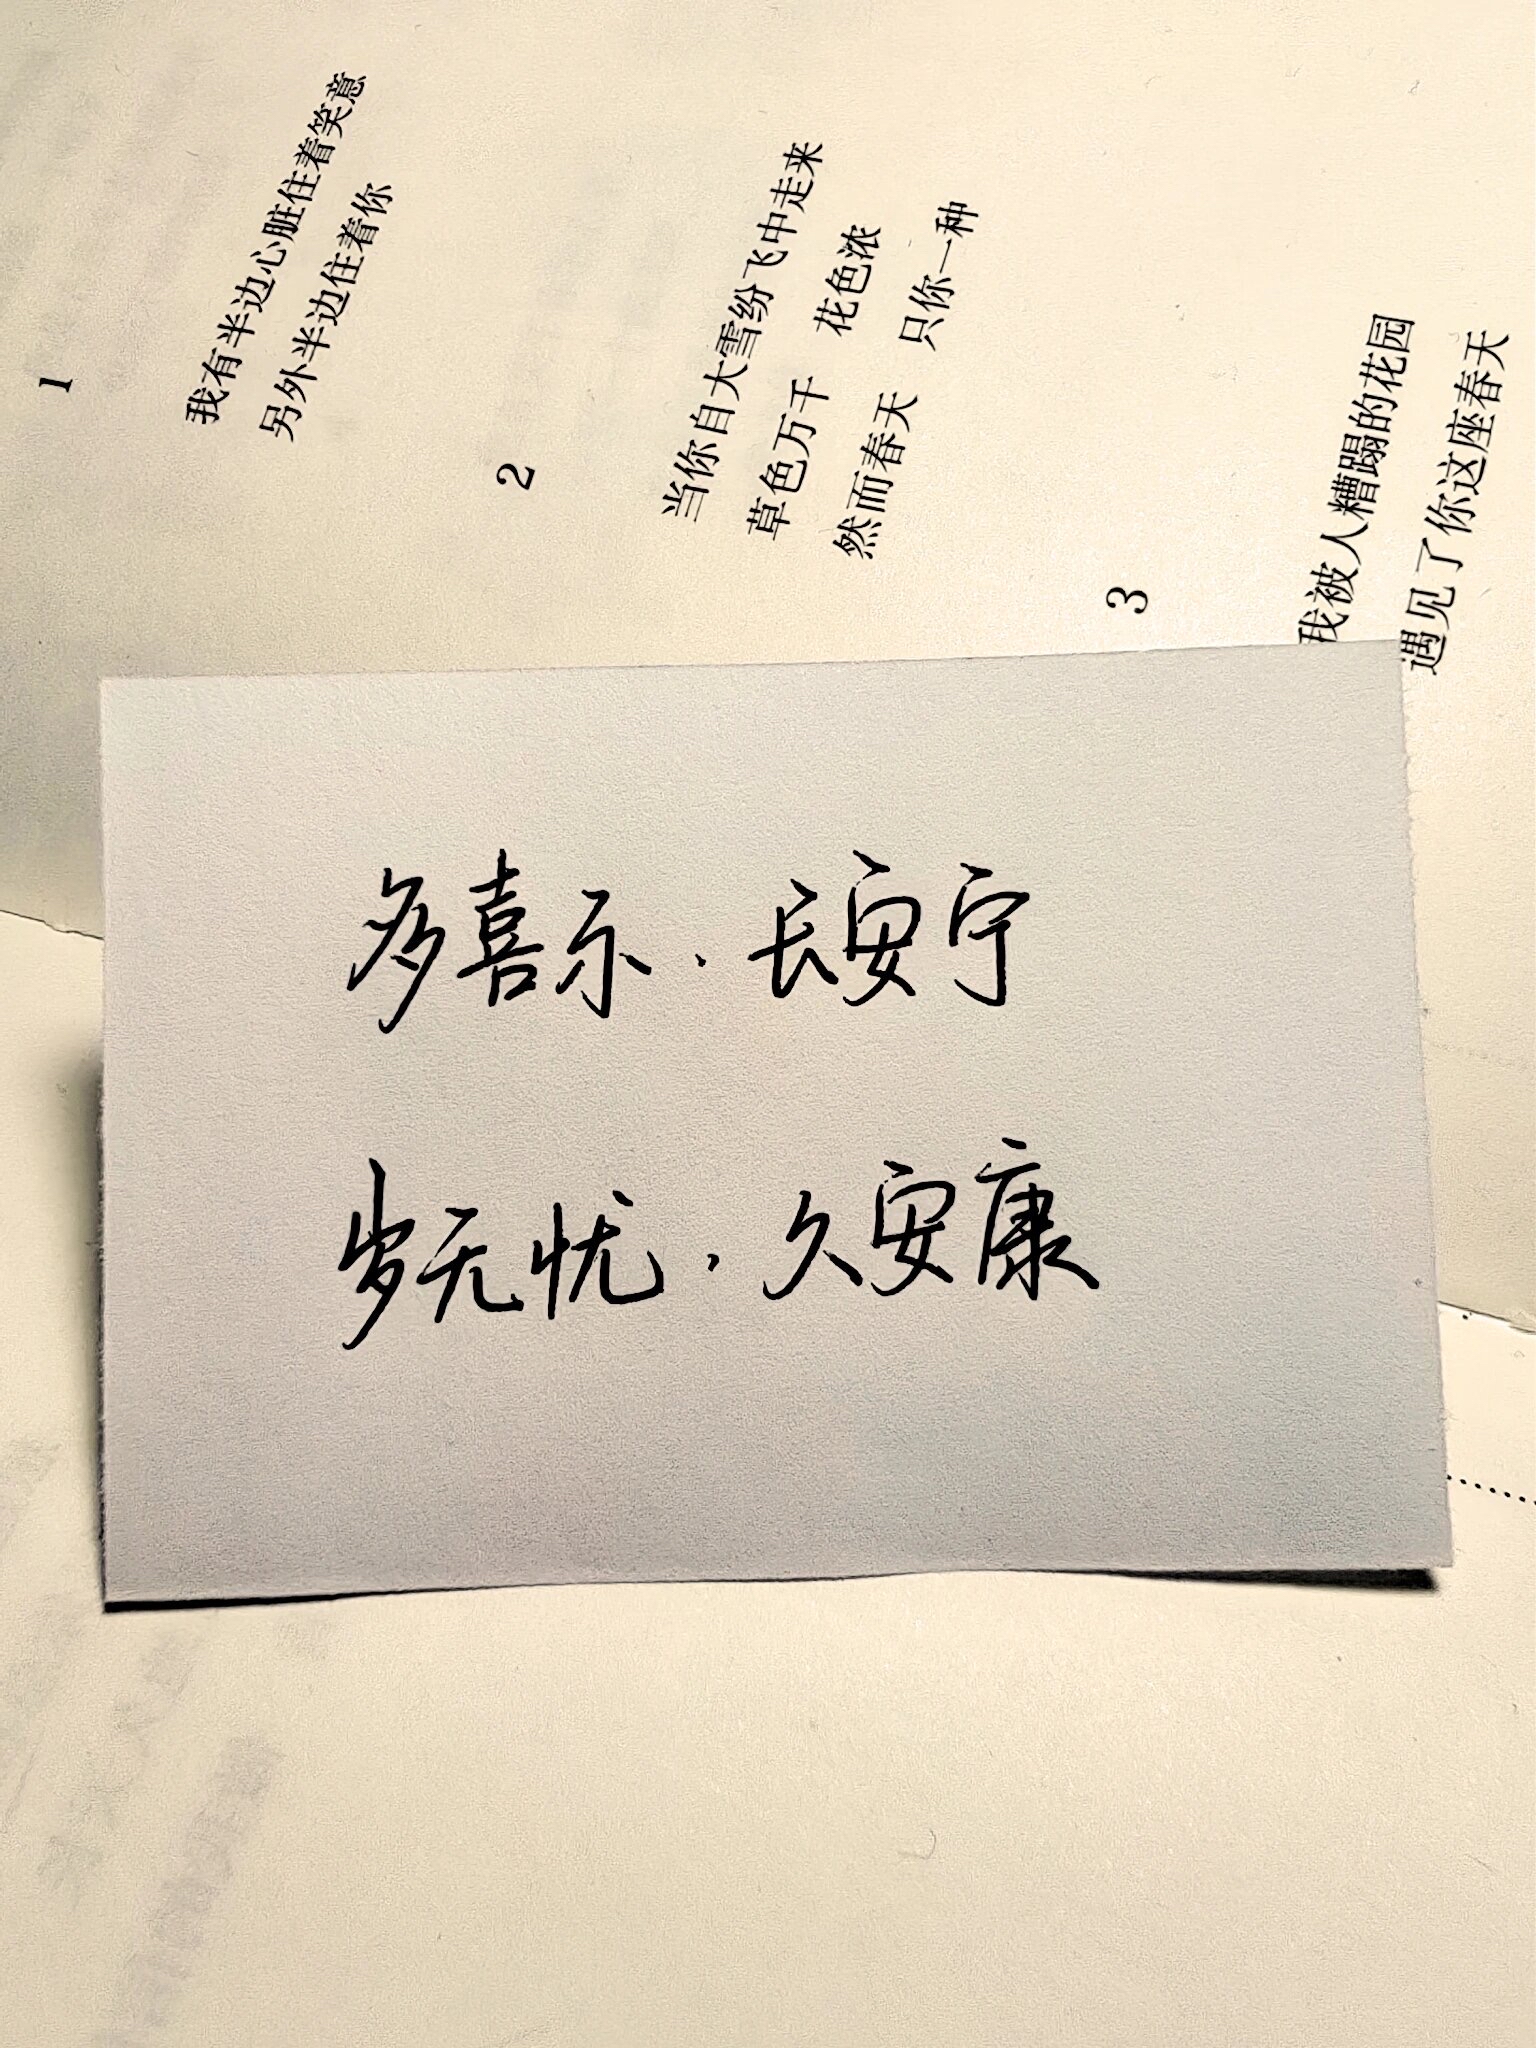 1
我有半边心脏住着笑意
另外半边住着你
2
当你自大雪纷飞中走来
草色万千 花色浓
然而春天 只你一种
3
我被人糟蹋的花园
遇见了你这座春天
多喜乐·长安宁
岁无忧·久安康